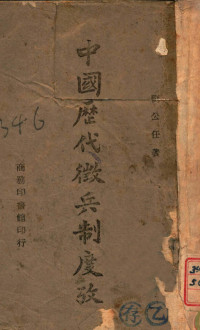 中國歷代徵兵制度攷
公任著
商務印書館印行
346
存
乙